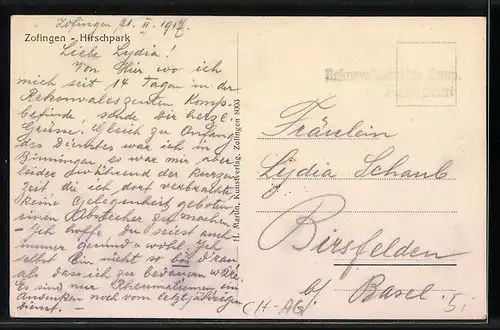 Zofingen, 21. II. 1917.
Zofingen - Hirschpark
Liebe Lydia!
Von Hier, wo ich
mich seit 14 Tagen in der
Rekonvaleszenten Komp.
befinde, sende Dir herzl.
Grüsse. Gleich zu Anfang
des Dienstes war ich in
Binningen, es war mir aber
leider während der kurzen
Zeit die ich dort verbrachte
keine Gelegenheit geboten
einen Abstecher zu machen.
- Ich hoffe, Du seiest auch
immer gesund & wohl. Ich
selbst bin nicht so bös d'ran
als dass ich zu bedauern wäre
Es sind nur Rheumatismen ein
Andenken noch vom letztjährigen
Dienst. -
H. Martin, Kunstverlag, Zofingen 8003
Rekonvaleszenten Komp.
Feldpost
Fräulein
Lydia Schaub
Birsfelden
b/ Basel.
CH-AG
5.-